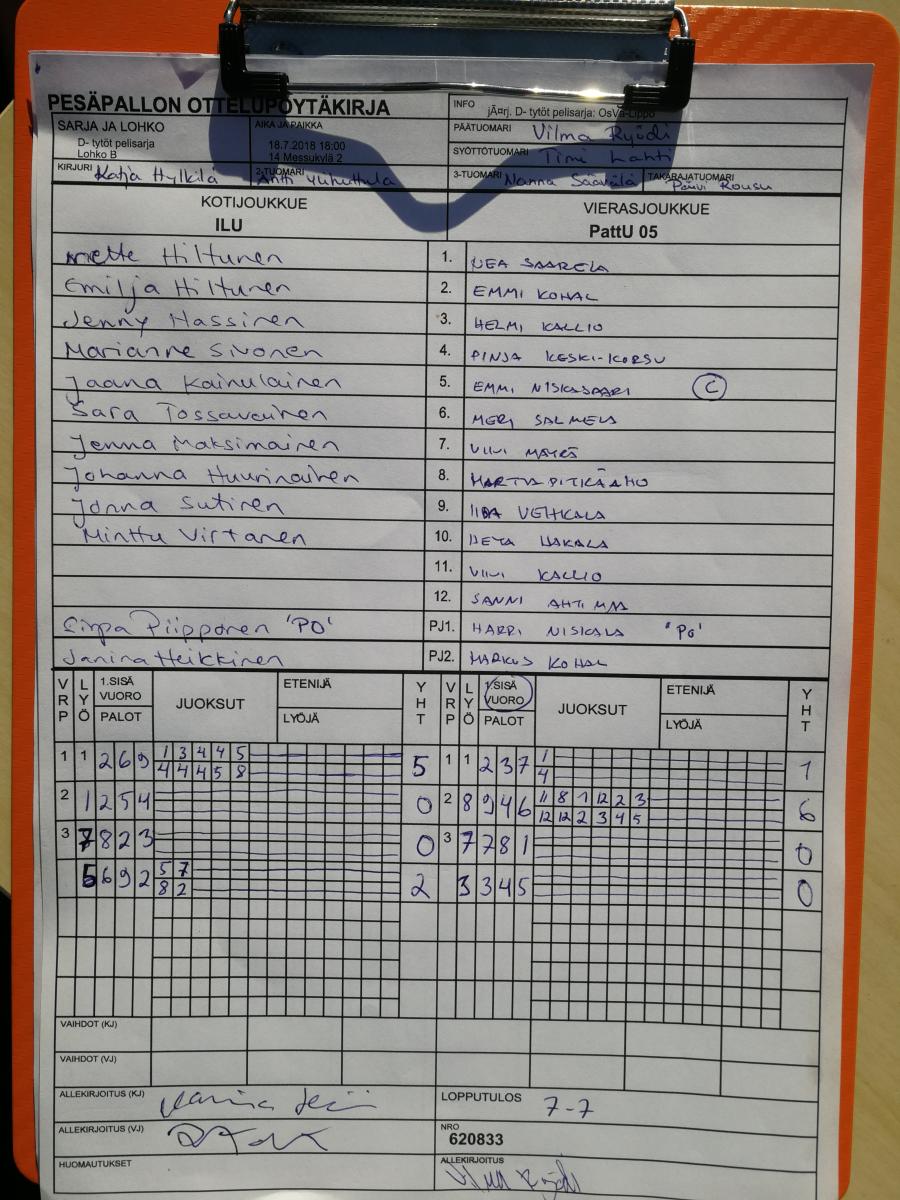 PESÄPALLON OTTELUPÖYTÄKIRJA
INFO
jÃ¤rj. D- tytöt pelisarja: OsVa-Lippo
SARJA JA LOHKO
D- tytöt pelisarja
Lohko B
AIKA JA PAIKKA
18.7.2018 18:00
14 Messukylä 2
PÄÄTUOMARI Vilma Ryödi
SYÖTTÖTUOMARI Timi Lahti
KIRJURI Katja Hylkilä
2-TUOMARI Antti
3-TUOMARI Nanna Säävälä
TAKARAJATUOMARI Päivi Rousu
KOTIJOUKKUE
ILU
VIERASJOUKKUE
PattU 05
Mette Hiltunen 1. NEA SAARELA
Emilja Hiltunen 2. EMMI KOHAL
Jenny Hassinen 3. HELMI KALLIO
Marianne Sivonen 4. PINJA KESKI-KORSU
Jaana Kainulainen 5. EMMI NISKASAARI C
Sara Tossavainen 6. MERI SALMELA
Jenna Maksimainen 7. VIIVI MÄYRÄ
Johanna Huurinainen 8. MARTTA PITKÄAHO
Jonna Sutinen 9. IIDA VEHKALA
Minttu Virtanen 10. NEYA HAKALA
11. VIIVI KALLIO
12. SANNI AHTIMAA
Sirpa Piipponen 'PO' PJ1. HARRI NISKALA "PO'
Janina Heikkinen PJ2. MARKUS KOHAL
VRP LYÖ 1.SISÄ VUORO PALOT JUOKSUT ETENIJÄ LYÖJÄ YHT VRP LYÖ 1.SISÄ VUORO PALOT JUOKSUT ETENIJÄ LYÖJÄ YHT
1 1 2 6 9 1 3 4 4 5 5 1 1 2 3 7 1 1
4 4 4 5 8 4
2 1 2 5 4 0 2 8 9 4 6 11 8 1 12 2 3 6
12 12 2 3 4 5
3 7 8 2 3 0 3 7 7 8 1 0
5 6 9 2 5 7 2 3 3 4 5 0
8 2
VAIHDOT (KJ)
VAIHDOT (VJ)
ALLEKIRJOITUS (KJ)
LOPPUTULOS 7-7
ALLEKIRJOITUS (VJ)
NRO
620833
HUOMAUTUKSET
ALLEKIRJOITUS